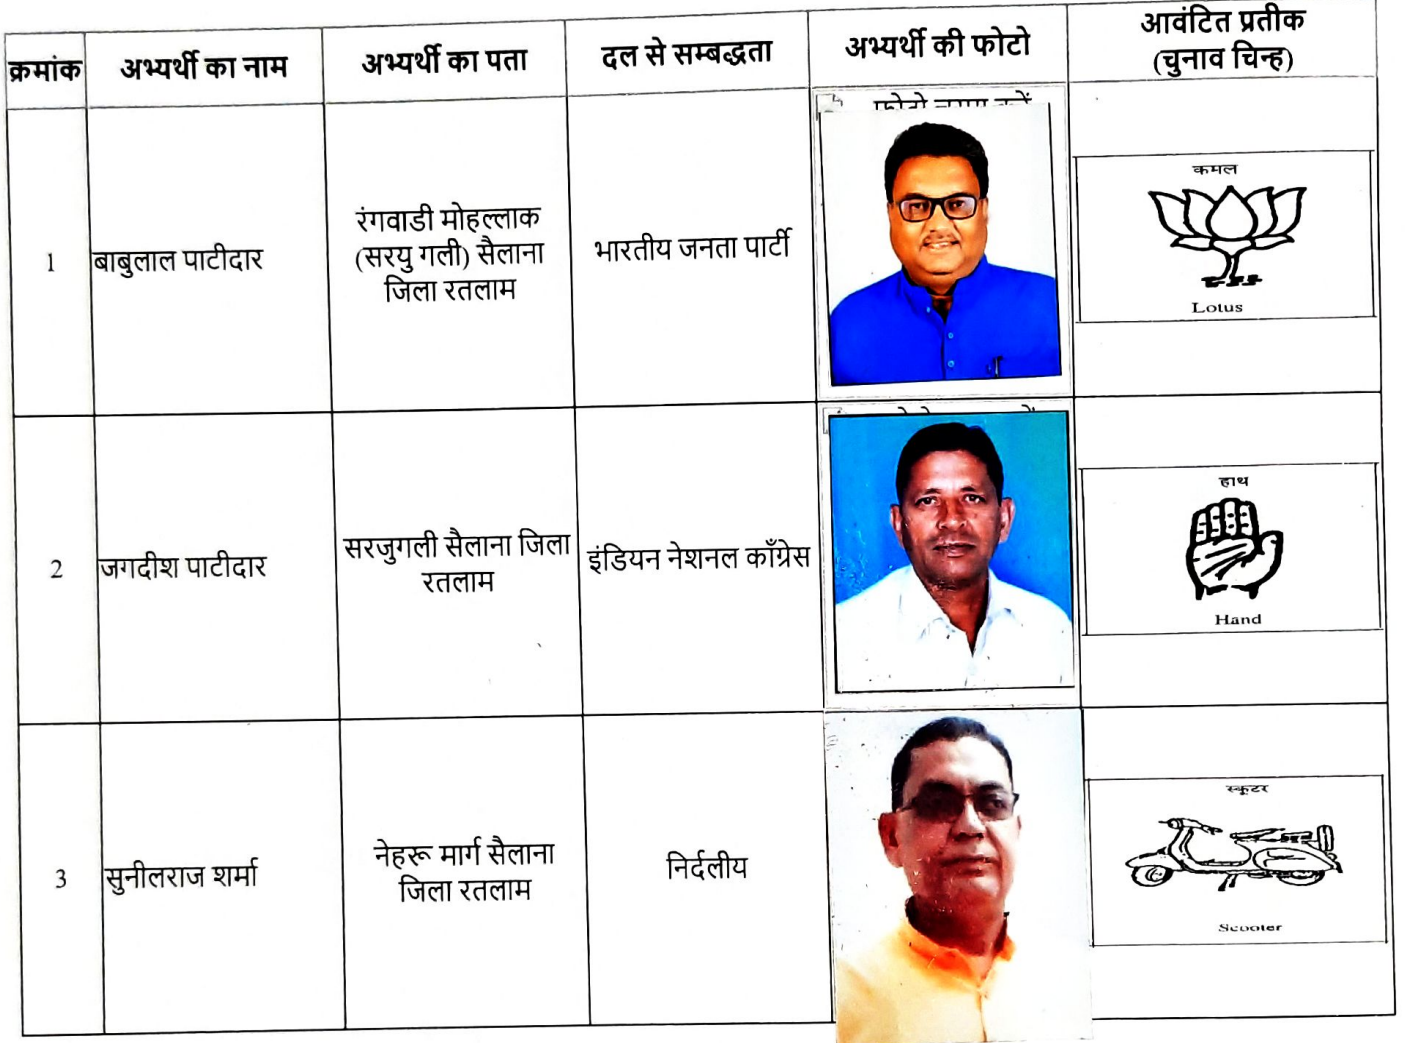 क्रमांक
अभ्यर्थी का नाम
अभ्यर्थी का पता
दल से सम्बद्धता
अभ्यर्थी की फोटो
आवंटित प्रतीक
(चुनाव चिन्ह)
1
बाबुलाल पाटीदार
रंगवाडी मोहल्लाक
(सरयु गली) सैलाना
जिला रतलाम
भारतीय जनता पार्टी
कमल
Lotus
2
जगदीश पाटीदार
सरजुगली सैलाना जिला
रतलाम
इंडियन नेशनल काँग्रेस
हाथ
Hand
3
सुनीलराज शर्मा
नेहरू मार्ग सैलाना
जिला रतलाम
निर्दलीय
स्कूटर
Scooter